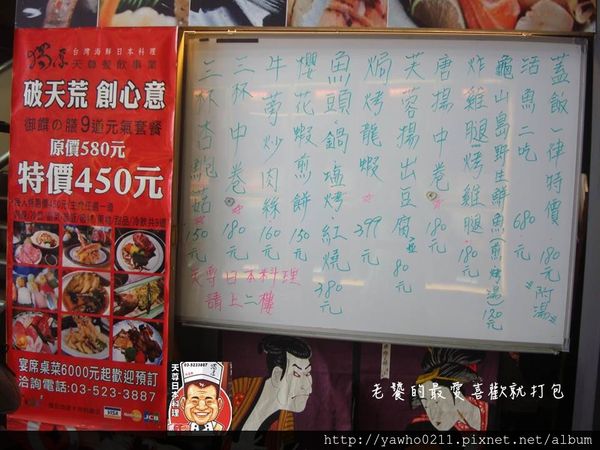 台灣海鮮日本料理
天尊餐飲事業
破天荒 創心意
御饌の膳9道元氣套餐
原價580元
特價450元
宴席桌菜6000元起歡迎預訂
洽詢電話:03-523-3887
VISA
JCB
蓋飯一律特價 180元 附湯
活魚二吃 680元
龜山島野生鮮魚(魚烤湯) 120元
炸雞腿烤雞腿 180元
唐揚中卷 180元
芙蓉揚出豆腐 80元
焗烤龍蝦 399元
魚頭鍋塩烤紅燒 380元
櫻花蝦煎餅 150元
牛蒡炒肉絲 160元
三杯中卷 180元
三杯杏鮑菇 150元
天尊日本料理
請上二樓
03-5233887
天尊日本料理
老饕的最愛喜歡就打包
http://yawho0211.pixnet.net/album